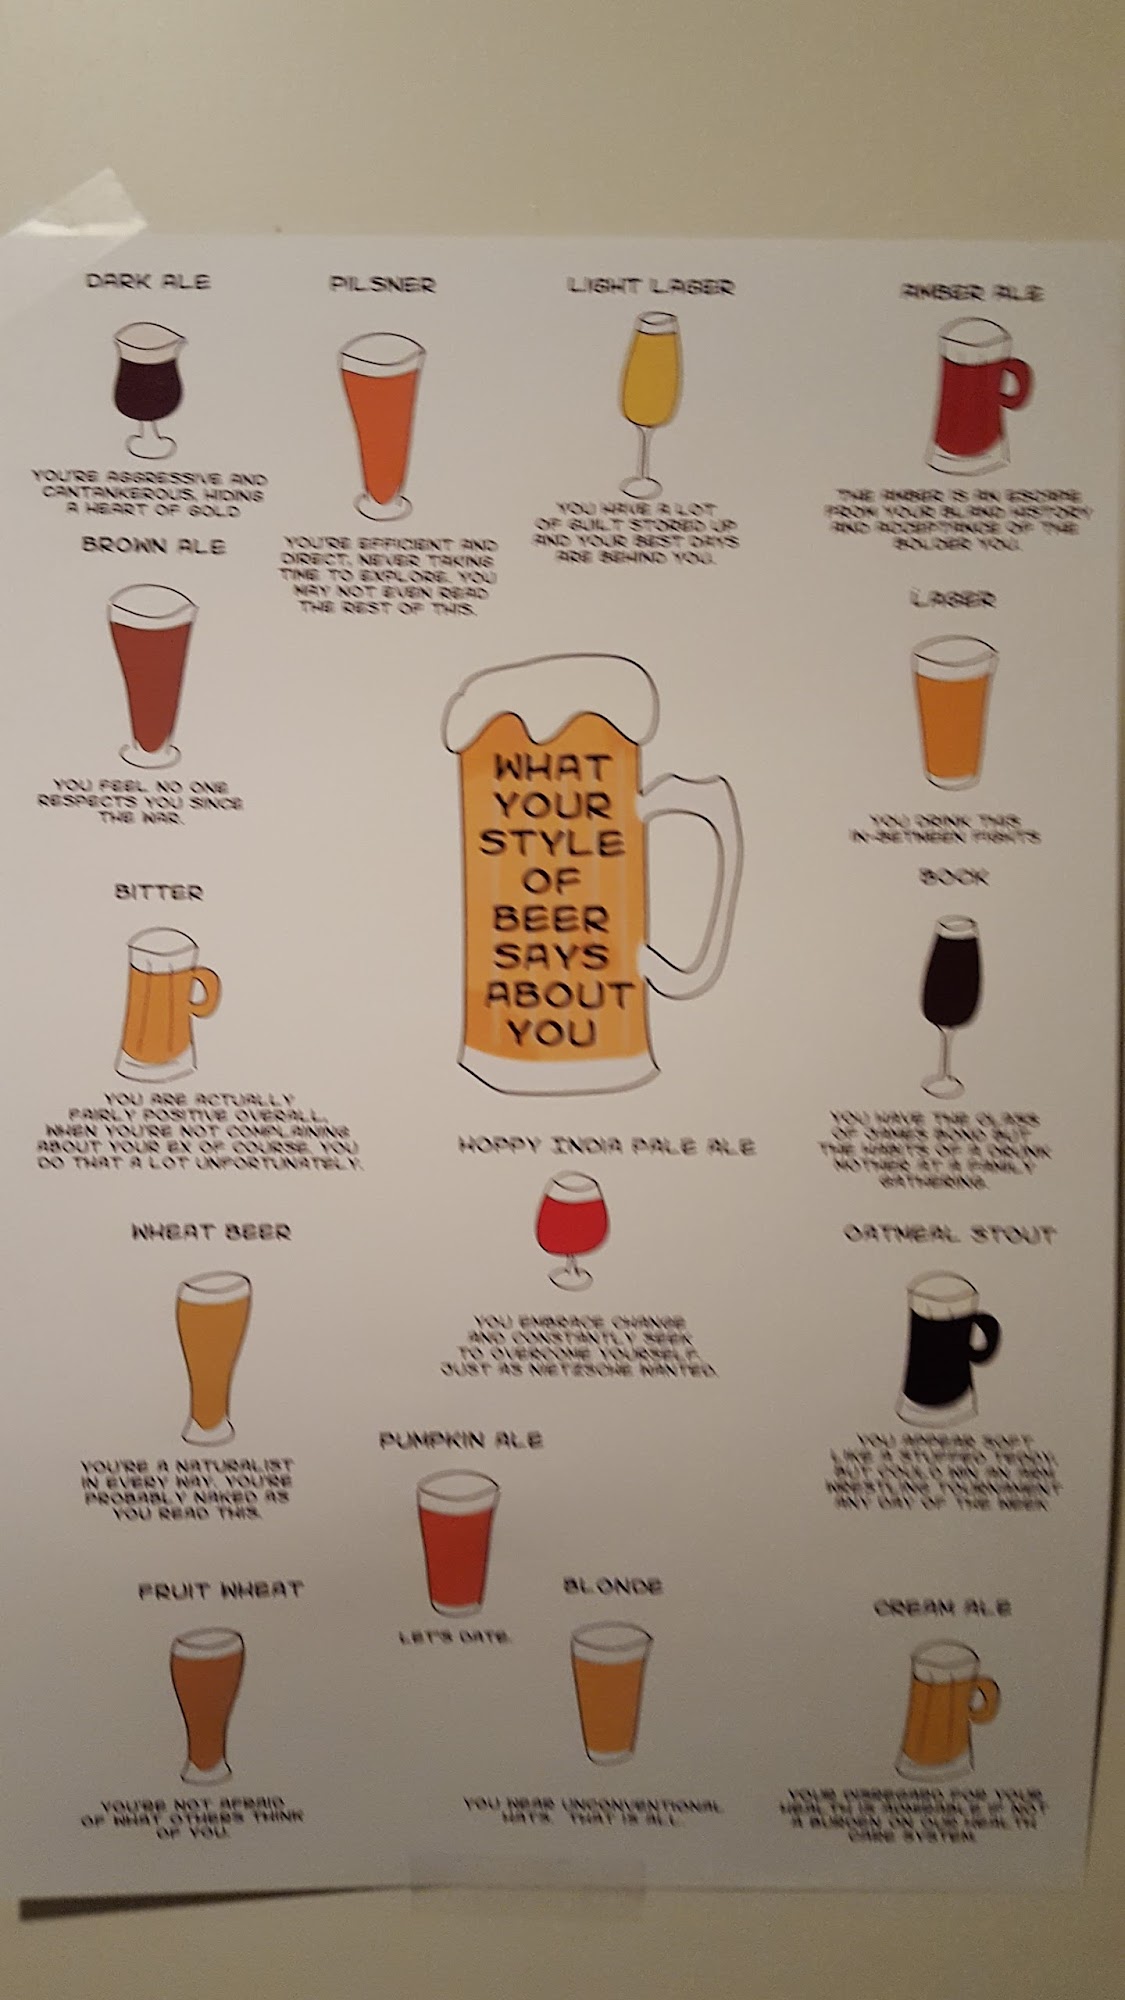 DARK ALE
YOU'RE AGGRESSIVE AND
CANTANKEROUS, HIDING
A HEART OF GOLD
PILSNER
YOU'RE EFFICIENT AND
DIRECT, NEVER TAKING
TIME TO EXPLORE. YOU
MAY NOT EVEN READ
THE REST OF THIS.
LIGHT LAGER
YOU HAVE A LOT
OF GUILT STORED UP
AND YOUR BEST DAYS
ARE BEHIND YOU.
AMBER ALE
THE AMBER IS AN ESCAPE
FROM YOUR BLAND HISTORY
AND ACCEPTANCE OF THE
BOLDER YOU.
BROWN ALE
YOU FEEL NO ONE
RESPECTS YOU SINCE
THE WAR.
WHAT
YOUR
STYLE
OF
BEER
SAYS
ABOUT
YOU
LAGER
YOU DRINK THIS
IN-BETWEEN FIGHTS
BITTER
YOU ARE ACTUALLY
FAIRLY POSITIVE OVERALL,
WHEN YOU'RE NOT COMPLAINING
ABOUT YOUR EX OF COURSE. YOU
DO THAT A LOT UNFORTUNATELY.
BOCK
YOU HAVE THE CLASS
OF JAMES BOND BUT
THE HABITS OF A DRUNK
MOTHER AT A FAMILY
GATHERING.
HOPPY INDIA PALE ALE
YOU EMBRACE CHANGE
AND CONSTANTLY SEEK
TO OVERCOME YOURSELF.
JUST AS NIETZSCHE WANTED.
WHEAT BEER
YOU'RE A NATURALIST
IN EVERY WAY. YOU'RE
PROBABLY NAKED AS
YOU READ THIS.
OATMEAL STOUT
YOU APPEAR SOFT
LIKE A STUFFED TEDDY,
BUT COULD WIN AN ARM
WRESTLING TOURNAMENT
ANY DAY OF THE WEEK
PUMPKIN ALE
LET'S DATE.
FRUIT WHEAT
YOU'RE NOT AFRAID
OF WHAT OTHERS THINK
OF YOU.
BLONDE
YOU WEAR UNCONVENTIONAL
HATS. THAT IS ALL.
CREAM ALE
YOUR DISREGARD FOR YOUR
HEALTH IS ADMIRABLE IF NOT
A BURDEN ON OUR HEALTH
CARE SYSTEM.